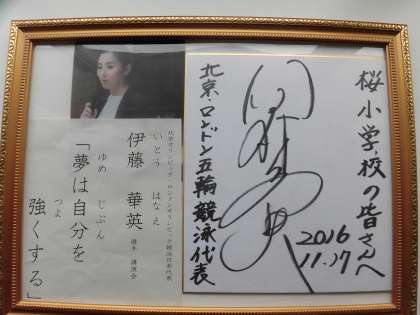 桜小学校の皆さんへ
2016
11.17
北京・ロンドン五輪競泳代表
北京オリンピック・ロンドンオリンピック競泳日本代表
いとう はなえ
伊藤 華英 選手 講演会
ゆめ じぶん
「夢は自分を
つよ
強くする」